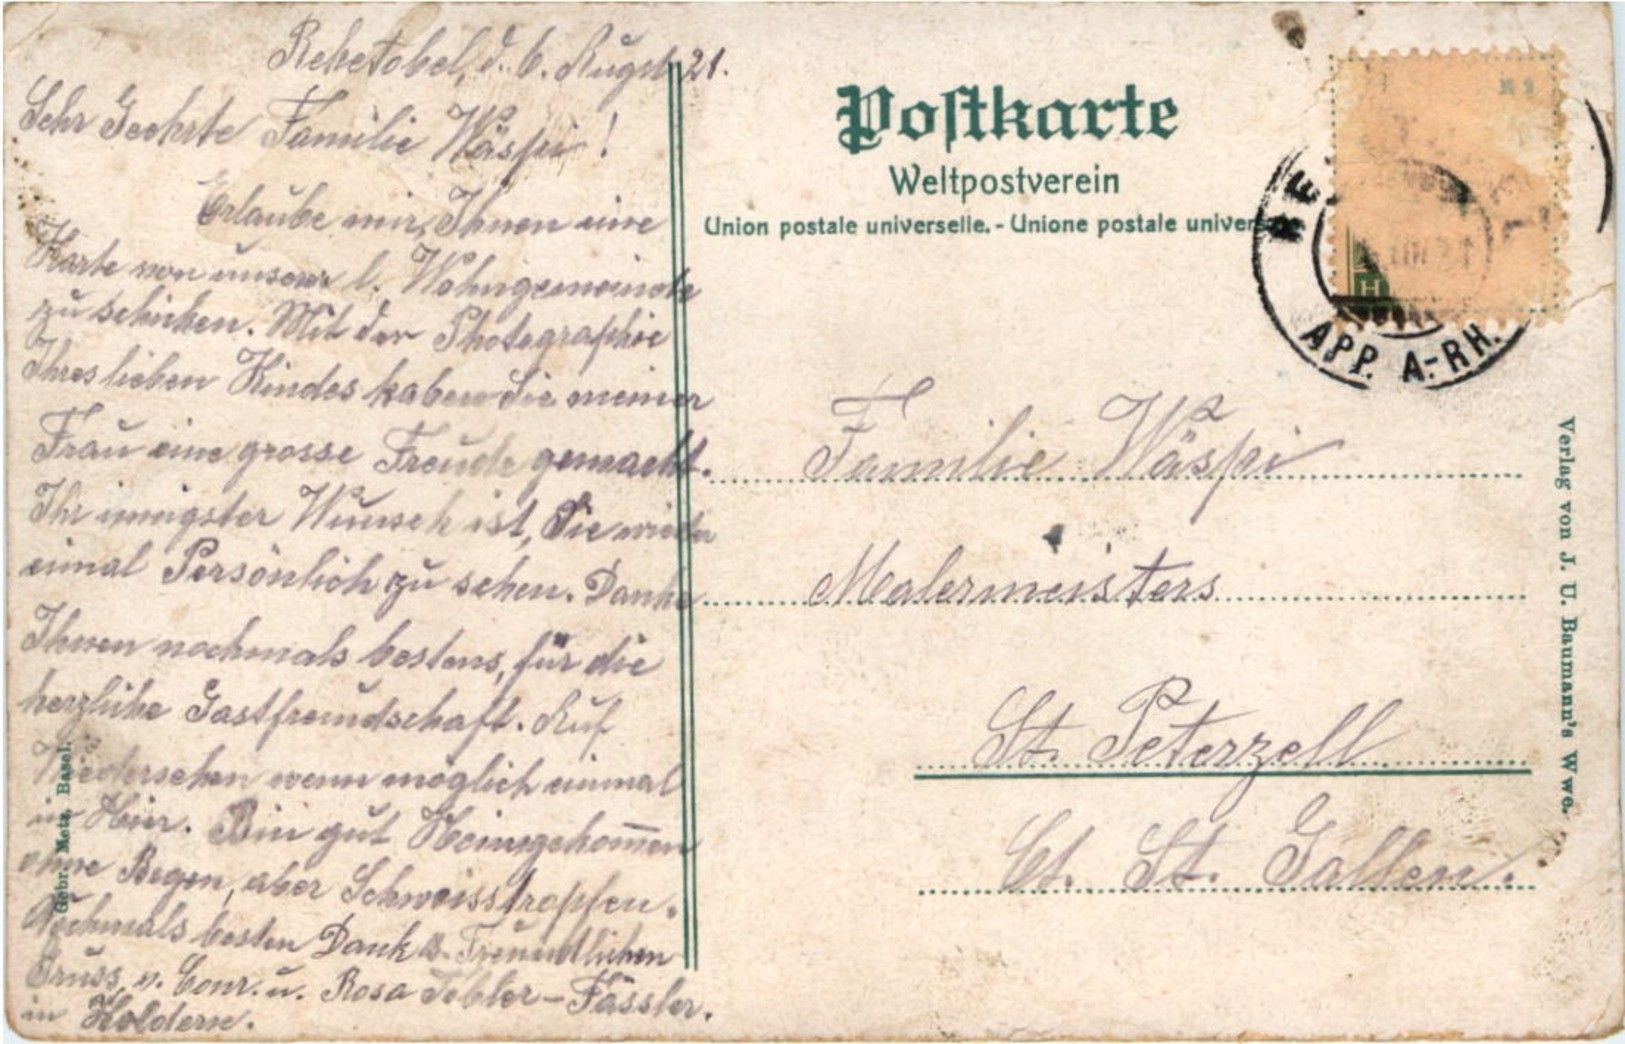 Rehetobel, d. 6. Augst. 21.
Sehr Geehrte Familie Wäspi!
Erlaube mir, Ihnen eine
Karte von unserer l. Wohngemeinde
zu schicken. Mit der Photographie
Ihres lieben Kindes haben Sie meiner
Frau eine grosse Freude gemacht.
Ihr innigster Wunsch ist, Sie wieder
einmal Persönlich zu sehen. Danke
Ihnen nochmals bestens, für die
herzliche Gastfreundschaft. Auf
Wiedersehen wenn möglich einmal
in Hier. Bin gut Heimgekom̅en
ohne Regen, aber Schweisstropfen.
Nochmals besten Dank & Freundlichen
Gruss, v. Conr. u. Rosa Tobler-Fässler.
in Holdern.
Gebr. Metz, Basel.
Postkarte
Weltpostverein
Union postale universelle. - Unione postale univers
APP. A.-RH.
Familie Wäspi
Malermeisters
St. Peterzell
Ct. St. Gallen.
Verlag von J. U. Baumann's Wwe.